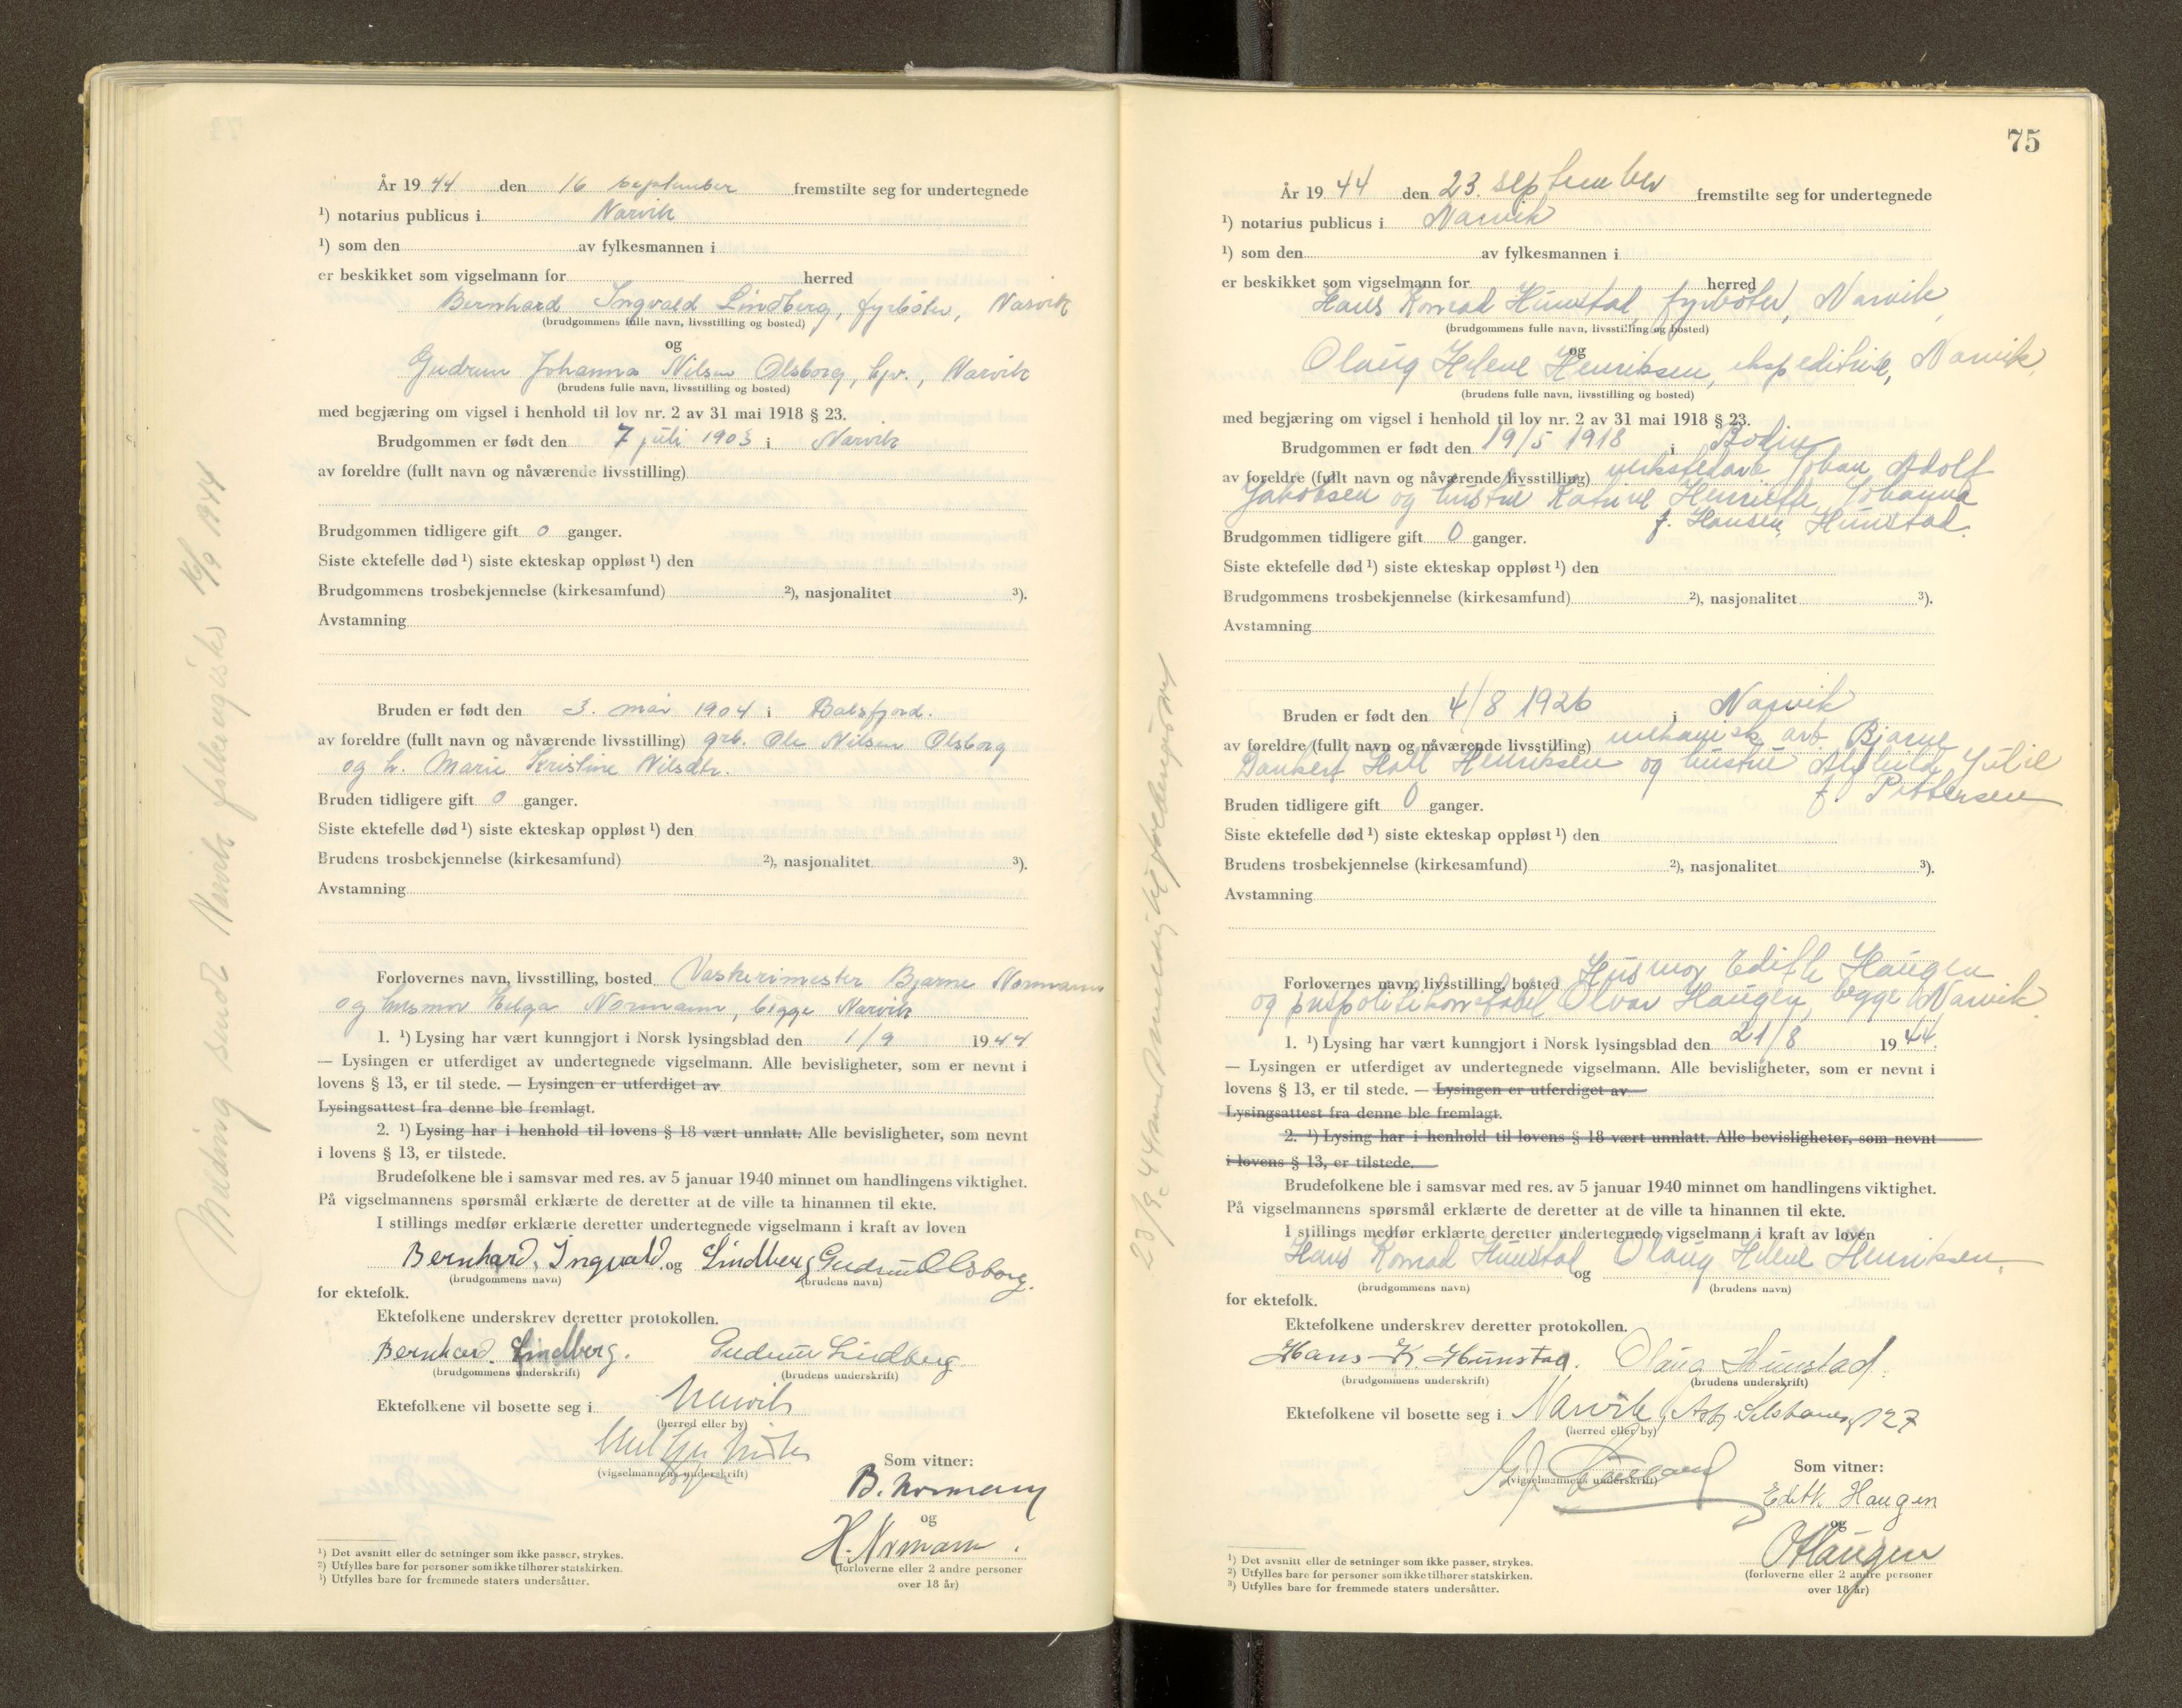 År 1944 den 16 september fremstilte seg for undertegnede
¹) notarius publicus i Narvik
¹) som den av fylkesmannen i
er beskikket som vigselmann for herred
Bernhard Ingvald Lindberg, fyrbøter, Narvik
(brudgommens fulle navn, livsstilling og bosted)
og
Gudrun Johanna Nilsen Olsborg, hjv., Narvik
(brudens fulle navn, livsstilling og bosted)
med begjæring om vigsel i henhold til lov nr. 2 av 31 mai 1918 § 23.
Brudgommen er født den 7 juli 1903 i Narvik
av foreldre (fullt navn og nåværende livsstilling)
Brudgommen tidligere gift 0 ganger.
Siste ektefelle død ¹) siste ekteskap oppløst ¹) den
Brudgommens trosbekjennelse (kirkesamfund) ²), nasjonalitet ³).
Avstamning
Bruden er født den 3. mai 1904 i Balsfjord.
av foreldre (fullt navn og nåværende livsstilling) grb. Ole Nilsen Olsborg
og h. Marie Kristine Nilsdtr.
Bruden tidligere gift 0 ganger.
Siste ektefelle død ¹) siste ekteskap oppløst ¹) den
Brudens trosbekjennelse (kirkesamfund) ²), nasjonalitet ³).
Avstamning
Forlovernes navn, livsstilling, bosted Vaskerimester Bjarne Normann
og husmor Helga Normann, begge Narvik
1. ¹) Lysing har vært kunngjort i Norsk lysingsblad den 1/9 1944
— Lysingen er utferdiget av undertegnede vigselmann. Alle bevisligheter, som er nevnt i
lovens § 13, er til stede. — Lysingen er utferdiget av
Lysingsattest fra denne ble fremlagt.
2. ¹) Lysing har i henhold til lovens § 18 vært unnlatt. Alle bevisligheter, som nevnt
i lovens § 13, er tilstede.
Brudefolkene ble i samsvar med res. av 5 januar 1940 minnet om handlingens viktighet.
På vigselmannens spørsmål erklærte de deretter at de ville ta hinannen til ekte.
I stillings medfør erklærte deretter undertegnede vigselmann i kraft av loven
Bernhard Ingvald og Lindberg Gudrun Olsborg.
(brudgommens navn) (brudens navn)
for ektefolk.
Ektefolkene underskrev deretter protokollen.
Bernhard Lindberg. Gudrun Lindberg
(brudgommens underskrift) (brudens underskrift)
Ektefolkene vil bosette seg i Narvik
(herred eller by)
(vigselmannens underskrift)
Som vitner:
B. Normann
og
H. Normann.
(forloverne eller 2 andre personer
over 18 år)
¹) Det avsnitt eller de setninger som ikke passer, strykes.
²) Utfylles bare for personer som ikke tilhører statskirken.
³) Utfylles bare for fremmede staters undersåtter.
Melding sendt Narvik folkeregister 16/9 1944
75
År 1944 den 23. september fremstilte seg for undertegnede
¹) notarius publicus i Narvik
¹) som den av fylkesmannen i
er beskikket som vigselmann for herred
Hans Konrad Hunstad, fyrbøter, Narvik,
(brudgommens fulle navn, livsstilling og bosted)
og
Olaug Helene Henriksen, ekspeditrise, Narvik.
(brudens fulle navn, livsstilling og bosted)
med begjæring om vigsel i henhold til lov nr. 2 av 31 mai 1918 § 23.
Brudgommen er født den 19/5 1918 i Bodin
av foreldre (fullt navn og nåværende livsstilling) Johan Adolf
Jakobsen og hustru Katrine Henriette Johanna
f. Hansen, Hunstad.
Brudgommen tidligere gift 0 ganger.
Siste ektefelle død ¹) siste ekteskap oppløst ¹) den
Brudgommens trosbekjennelse (kirkesamfund) ²), nasjonalitet ³).
Avstamning
Bruden er født den 4/8 1926 i Narvik
av foreldre (fullt navn og nåværende livsstilling) mekanisk arb. Bjarne
Dankert Holl Henriksen og hustru Alfhild Julie
f. Pettersen
Bruden tidligere gift 0 ganger.
Siste ektefelle død ¹) siste ekteskap oppløst ¹) den
Brudens trosbekjennelse (kirkesamfund) ²), nasjonalitet ³).
Avstamning
Forlovernes navn, livsstilling, bosted Husmor Edith Haugen
og Olvar Haugen, begge Narvik.
1. ¹) Lysing har vært kunngjort i Norsk lysingsblad den 21/8 1944.
— Lysingen er utferdiget av undertegnede vigselmann. Alle bevisligheter, som er nevnt i
lovens § 13, er til stede. — Lysingen er utferdiget av
Lysingsattest fra denne ble fremlagt.
2. ¹) Lysing har i henhold til lovens § 18 vært unnlatt. Alle bevisligheter, som nevnt
i lovens § 13, er tilstede.
Brudefolkene ble i samsvar med res. av 5 januar 1940 minnet om handlingens viktighet.
På vigselmannens spørsmål erklærte de deretter at de ville ta hinannen til ekte.
I stillings medfør erklærte deretter undertegnede vigselmann i kraft av loven
Hans Konrad Hunstad og Olaug Helene Henriksen.
(brudgommens navn) (brudens navn)
for ektefolk.
Ektefolkene underskrev deretter protokollen.
Hans K. Hunstad. Olaug Hunstad.
(brudgommens underskrift) (brudens underskrift)
Ektefolkene vil bosette seg i Narvik, 127
(herred eller by)
(vigselmannens underskrift)
Som vitner:
Edith Haugen
og
O Haugen
(forloverne eller 2 andre personer
over 18 år)
¹) Det avsnitt eller de setninger som ikke passer, strykes.
²) Utfylles bare for personer som ikke tilhører statskirken.
³) Utfylles bare for fremmede staters undersåtter.
23/9-44